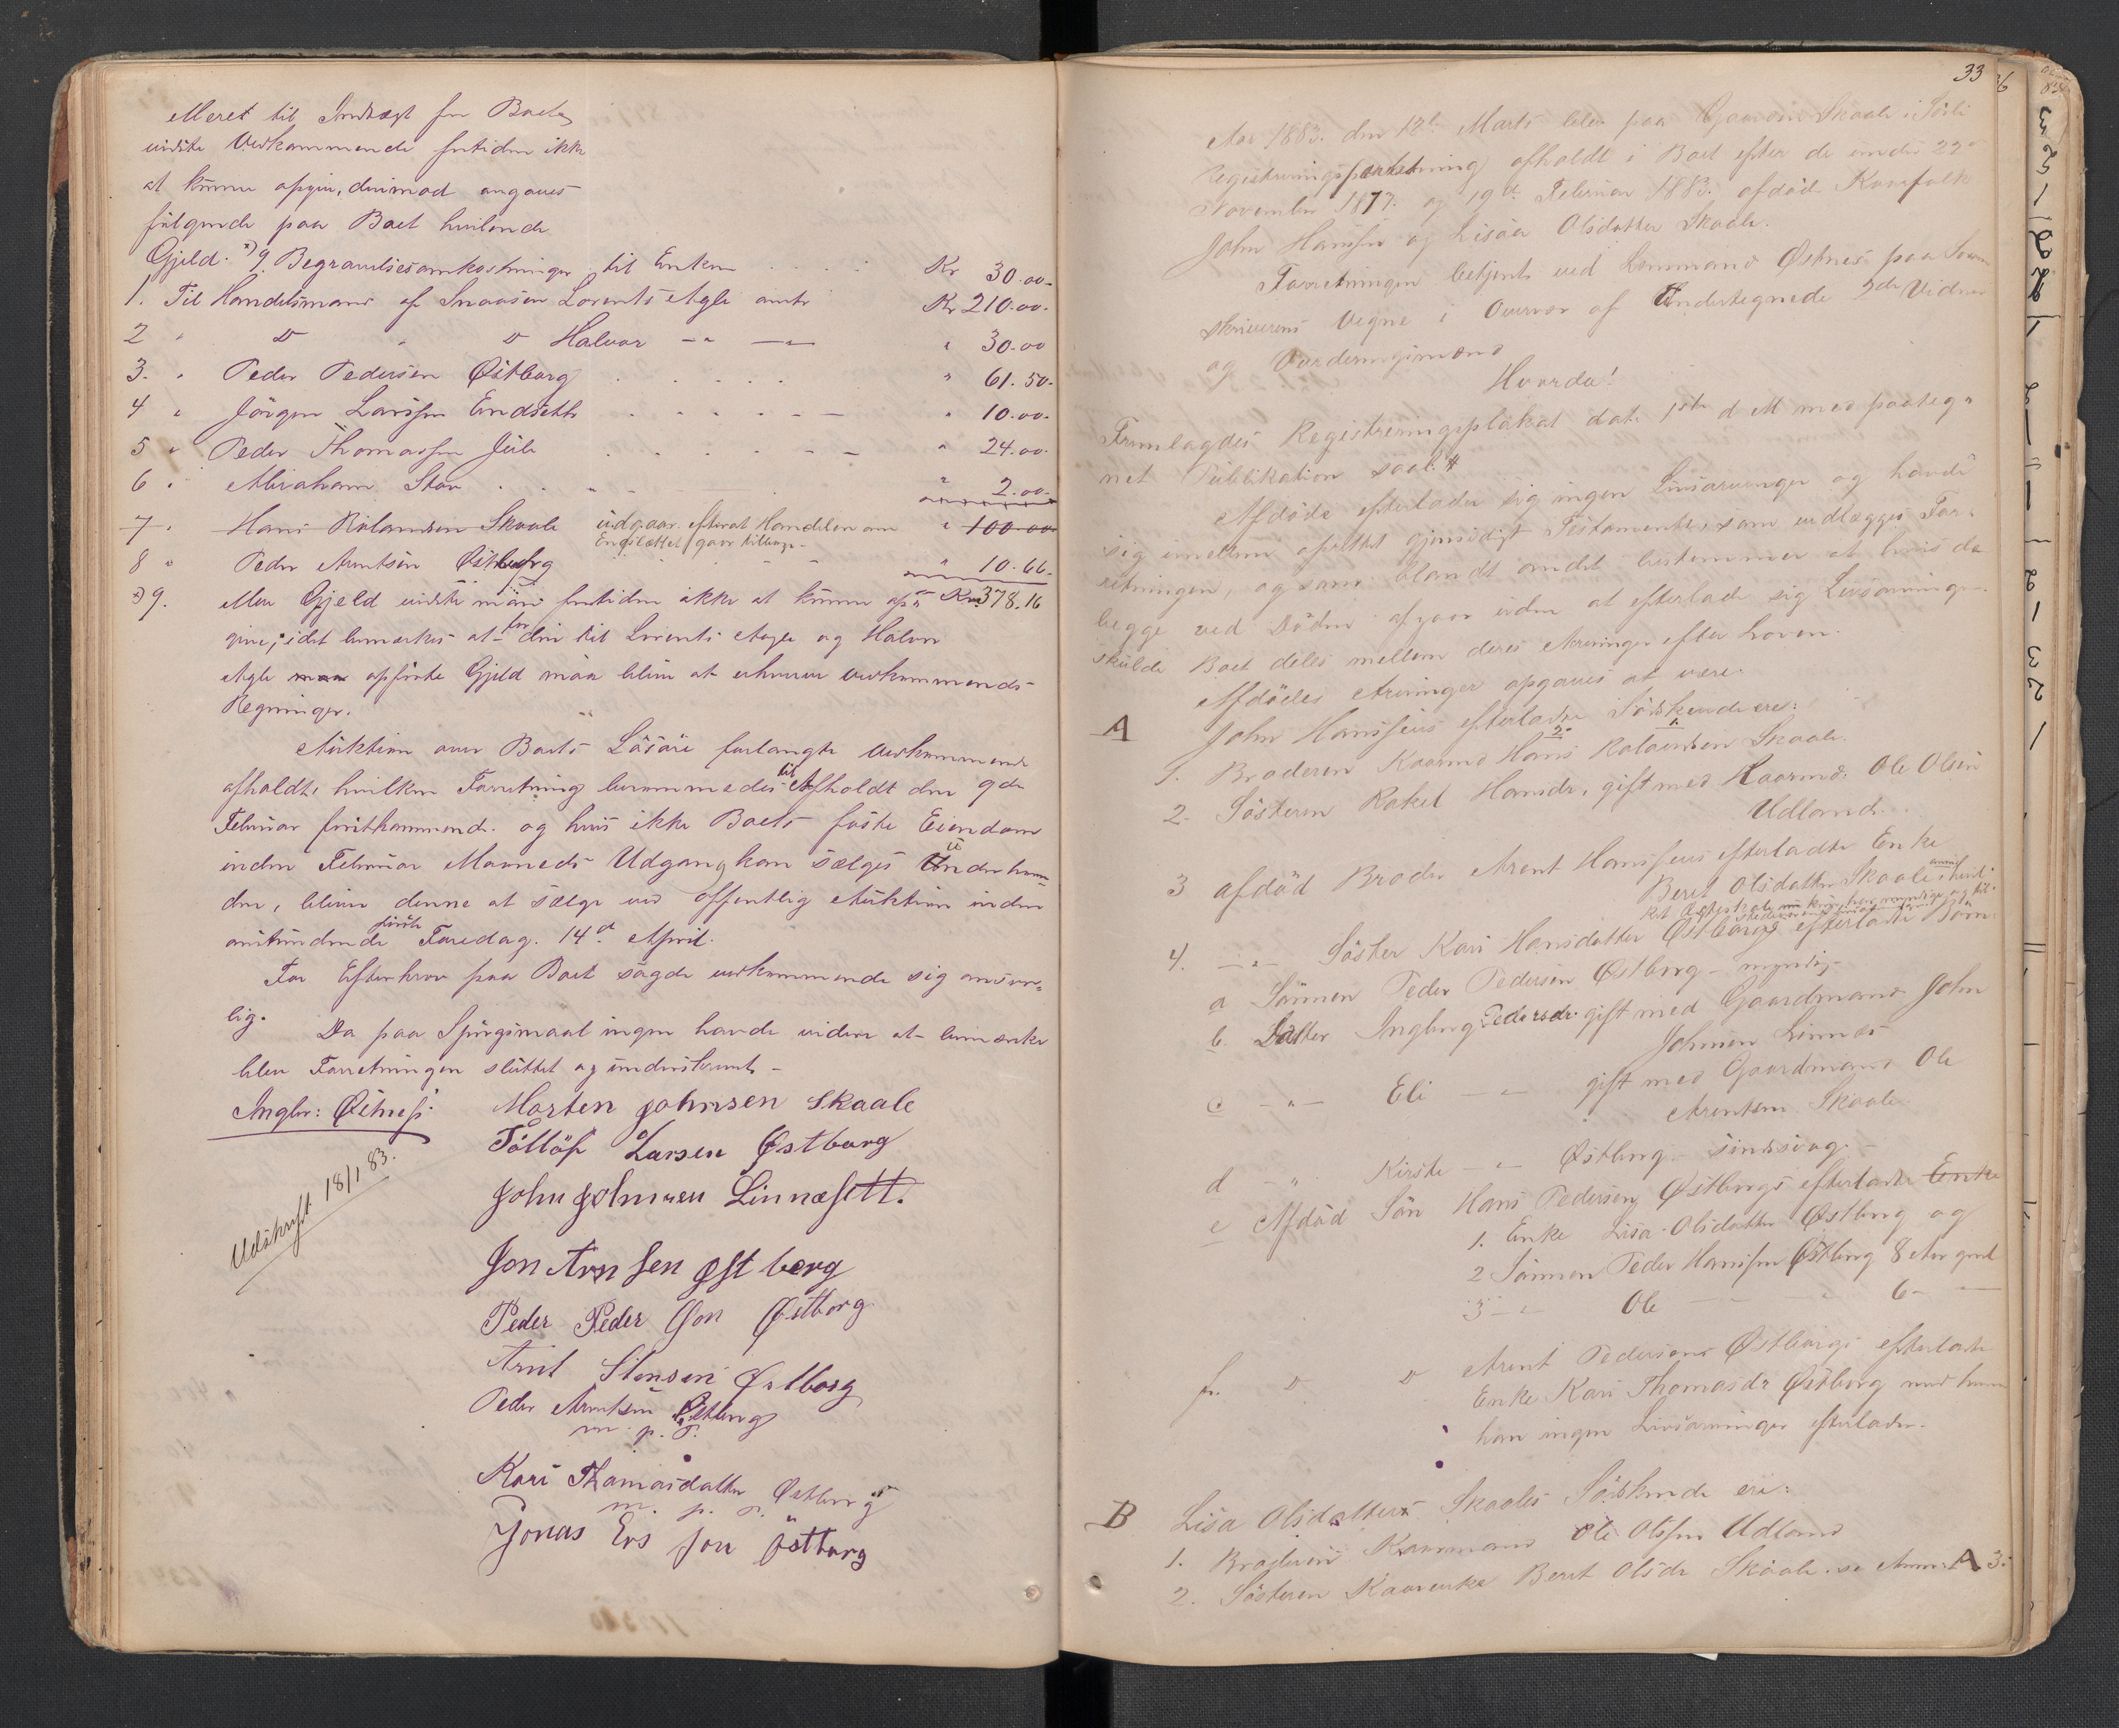 Meret til Indtægt for Boet
vidste Vedkommende fortiden ikke
at kunne opgive, derimod angaves
følgende paa Boet hvilende
Gjeld. *) 9. Begravelsesomkostninger til Enken . . . . Kr 30.00-
1. Til Handelsmand af Snaasen Lorents Agle anm Kr 210.00.
2 " D " D Halvor -"- —"— " 30.00
3. " Peder Pedersen Østborg . . . . . " 61.50.
4 " Jörgen Larssen Endseth . . . . . - " 10.00.
5 " Peder Thomassen Jule . . . . . - " 24.00.
6 " Abraham Stor . . " - " 2.00.
7 " Hans Rolandsen Skaale udgaar efterat Handelen om " 100.00
Engslættet gaar tilbage.
8 " Peder Arntsen Østborg " 10.66.
*) 9. Mere Gjeld vidste man fortiden ikke at kunne op= Kr 378.16
give; idet bemærkes at for den til Lorents Agle og Halvor
Agle maa opførte Gjeld maa blive at erhverve vedkommendes
Regninger.
Auktion over Boets Løsøre forlangte vedkommende
afholdt, hvilken Forretning berammedes til Afholdt den 9de
Februar førstkommende. og hvis ikke Boets faste Eiendom
inden Februar Maaneds Udgang kan sælges underhaan=
den, bliver denne at sælge ved offentlig Auktion inden
anstundende første Faredag. 14d April.
For Efterkrav paa Boet sagde vedkommende sig ansvar=
lig.
Da paa Spørgsmaal ingen havde videre at bemærke
blev Forretningen sluttet og underskrevet. -
Ingbr: Østnes. Morten Johnsen Skaale
Tollöf Larsen Østborg
John Johnsen Linnæsett.
Udskrift 18/1 83.
Jon Arnsen Østberg
Peder Peder Son Østborg
Arnt Stensen Østborg
Peder Arntsen Østborg
m. p. P.
Kari Thomasdatter Østborg
m. p. P.
Jonas Ers son Østborg
33
Aar 1883. den 12te Marts blev paa Gaarden Skaale i Sörli
Registreringsforretning afholdt i Boet efter de under 22de
November 1877. og 19d Februar 1883. afdöde Konefolk
John Hanssen og Lisa Olsdatter Skaale.
Forretningen betjent ved Lensmand Østnes paa Soren
skriverens Vegne i Overvær af Undertegnede 2de Vidner
og Vurderingsmænd
Hvorda!
Fremlagdes Registreringsplakat dat. 1ste d M med paateg=
net Publikation saal. #
Afdöde efterlader sig ingen Livsarvinger og havde
sig imellem oprettet gjensidigt Testamente, som vedlægges For=
retningen, og som blandt andet bestemmer at hvis de
begge ved Döden afgaar uden at efterlade sig Livsarvinger
skulde Boet deles mellem deres Arvinger efter Loven.
Afdödes Arvinger opgaves at være.
A John Hanssens efterladte Södskende ere:
1. Broderen Kaarmd Hans Rolandsen Skaale.
2. Söstern Rakel Hansdr, gift med Kaarmd: Ole Olsen
Udland.
3 afdöd Broder Arent Hanssens efterladte Enke
Beret Olsdatter Skaale
4. —"— Söster Kari Hansdatter Østborgs efterladte Börn:
a Sönnen Peder Pedersen Østborg - myndig.
b. Datter Ingbrg Pedersdr. gift med Gaardmand John
Johnsen Linnæs
c —"— Eli —"— gift med Gaardmand Ole
Arentsen Skaale
d —"— Kirste —"— Østborg - sindssvag.
e Afdöd Sön Hans Pedersen Østborgs efterladte Enke
1. Enke Lisa Olsdatter Østborg og
2 Sönnen Peder Hanssen Østborg 8 Aar gml
3 —"— Ole — — " 6 — —
f. D D Arent Pedersens Østborgs efterladte
Enke Kari Thomasdr Østborg med hvem
han ingen Livsarvinger efterlader.
B Lisa Olsdatters Skaales Södskende ere:
1. Broderen Kaarmand Ole Olssen Udland
2. Söstern Kaarenke Beret Olsdr Skaale. se Anm: A 3.